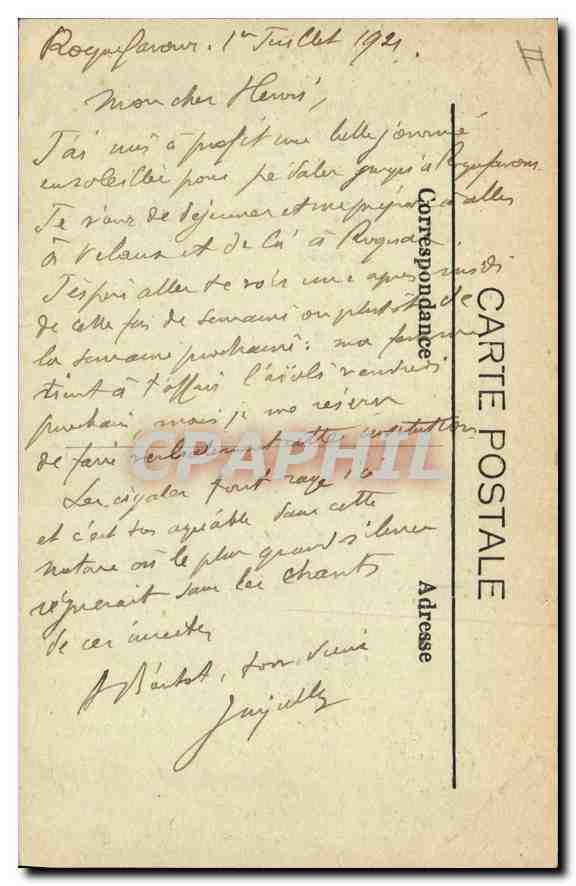 Roquefavour. 1er Juillet 1921.
Mon cher Henri,
J'ai mis à profit une belle journée
ensoleillée pour pédaler jusqu'à Roquefavour.
Je viens de déjeuner et me prépare à aller
à Velaux et de là à
J'espère aller te voir une après midi
de cette fin de semaine ou plutôt de
la semaine prochaine : ma femme
tient à t'offrir l'aïoli vendredi
prochain mais je me réserve
de faire verbalement cette invitation
Les cigales font rage ici
et c'est très agréable dans cette
nature où le plus grand silence
règnerait sans les chants
de ces insectes
A Bientôt, ton vieux
CARTE POSTALE
Correspondance
Adresse
CPAPHIL